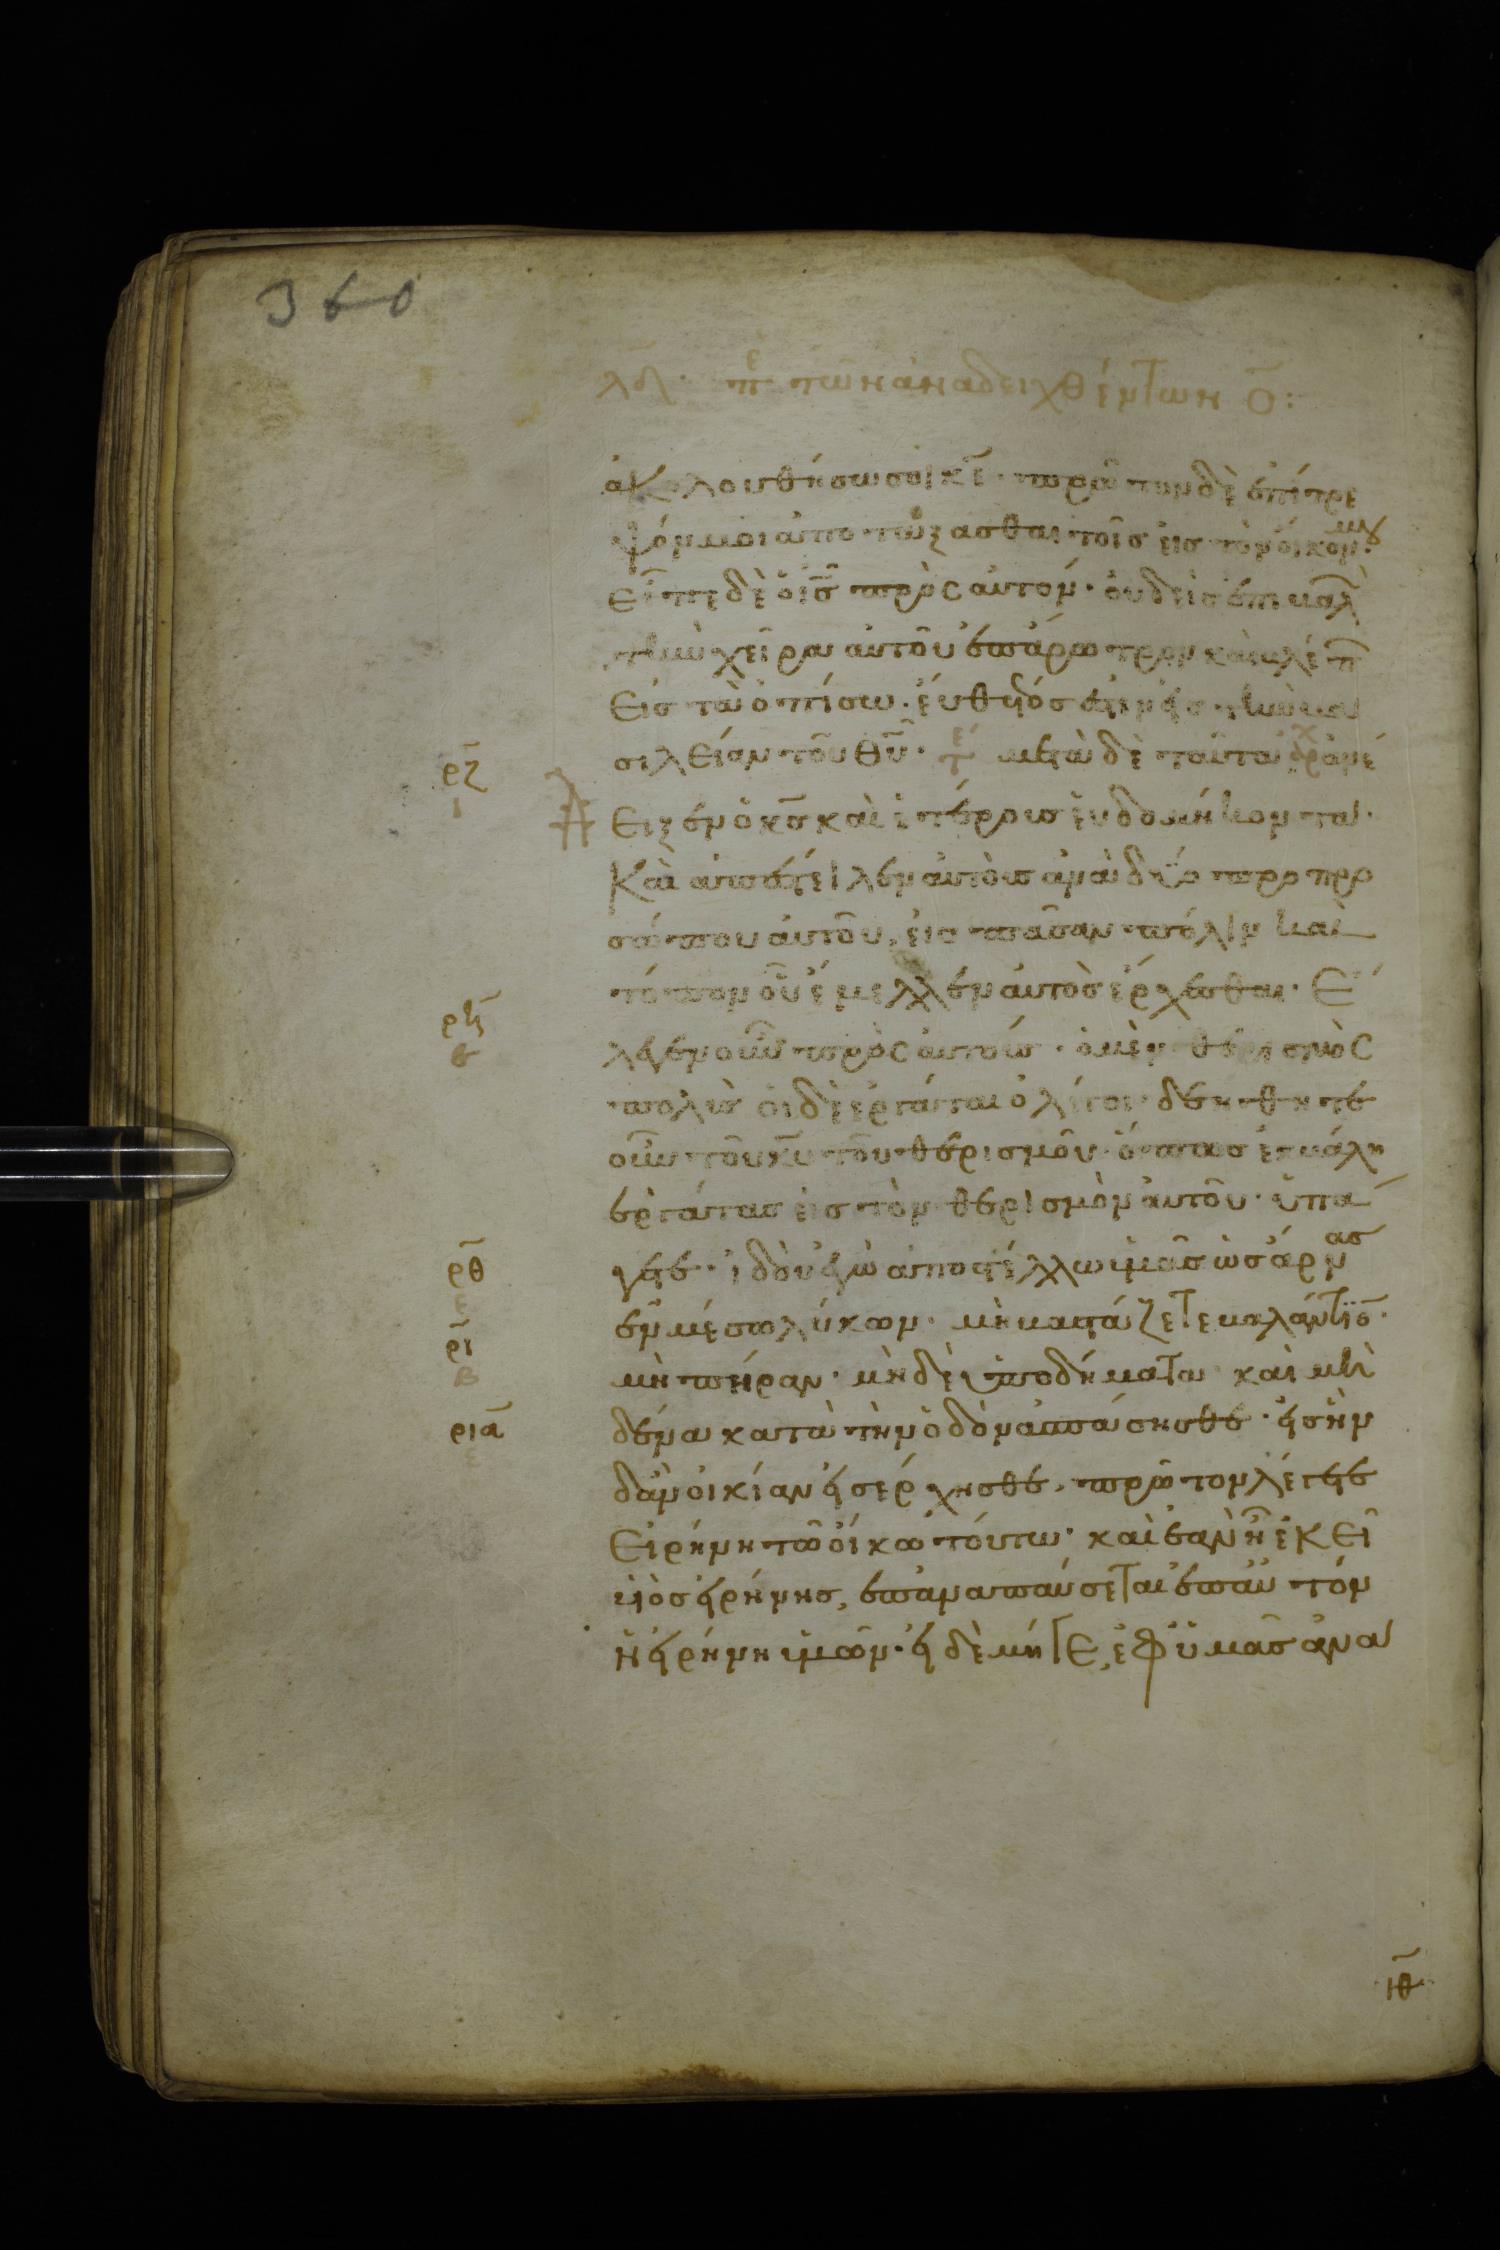 360
λδ· πε τῶν ἀναδειχθέντων ο̅:
ἀκολουθήσω σοι κε̅· πρῶτον δὲ ἐπίτρε
ψόν μοι ἀποτάξασθαι τοῖς εἰς τὸν οἶκον μου·
εἶπε δὲ ὁ ις̅ πρὸς αὐτόν· οὐδεὶς ἐπιβαλὼ
τὴν χεῖρα αὐτοῦ ἐπ' ἄροτρον καὶ βλέπ
εἰς τὰ ὀπίσω· εὔθετός ἐστιν εἰς τὴν βα
σιλείαν τοῦ θυ̅· τε μετὰ δὲ ταῦτα ἀρχ ἀνέ
ρζ
ι
ειξεν ὁ κς̅ καὶ ἑτέρους ἑβδομήκοντα·
καὶ ἀπέστειλεν αὐτοὺς ἀνὰ δύο πρὸ προ
σώπου αὐτοῦ, εἰς πᾶσαν πόλιν καὶ
τόπον οὗ ἔμελλεν αὐτὸς ἔρχεσθαι· ἔ
ρη
β
λεγεν οὖν πρὸς αὐτούς· ὁ μὲν θερισμὸς
πολὺς οἱ δὲ ἐργάται ὀλίγοι· δεήθητε
οὖν τοῦ κυ̅ τοῦ θερισμοῦ· ὅπως ἐκβάλη
ἐργάτας εἰς τὸν θερισμὸν αὐτοῦ· ὑπά
ρθ
ε
γετε· ἰδοὺ ἐγὼ ἀποστέλλω ὑμᾶς ὡς ἄρνας
ἐν μέσω λύκων· μὴ βαστάζετε βαλάντιον·
ρι
β
μὴ πήραν· μὴ δὲ ὑποδήματα καὶ μη
ρια
ε
δένα κατὰ τὴν ὁδὸν ἀσπάσησθε· εἰς ἣν
δ' ἂν οἰκίαν εἰσέρχησθε, πρῶτον λέγετε
εἰρήνη τῶ οἴκω τούτω· καὶ ἐὰν ἦ ἐκεῖ
υἱὸς εἰρήνης, ἐπαναπαύσεται ἐπ' αὐτὸν
ἡ εἰρήνη ὑμῶν· εἰ δὲ μήγε, ἐφ' ὑμᾶς ἀνα
ιθ